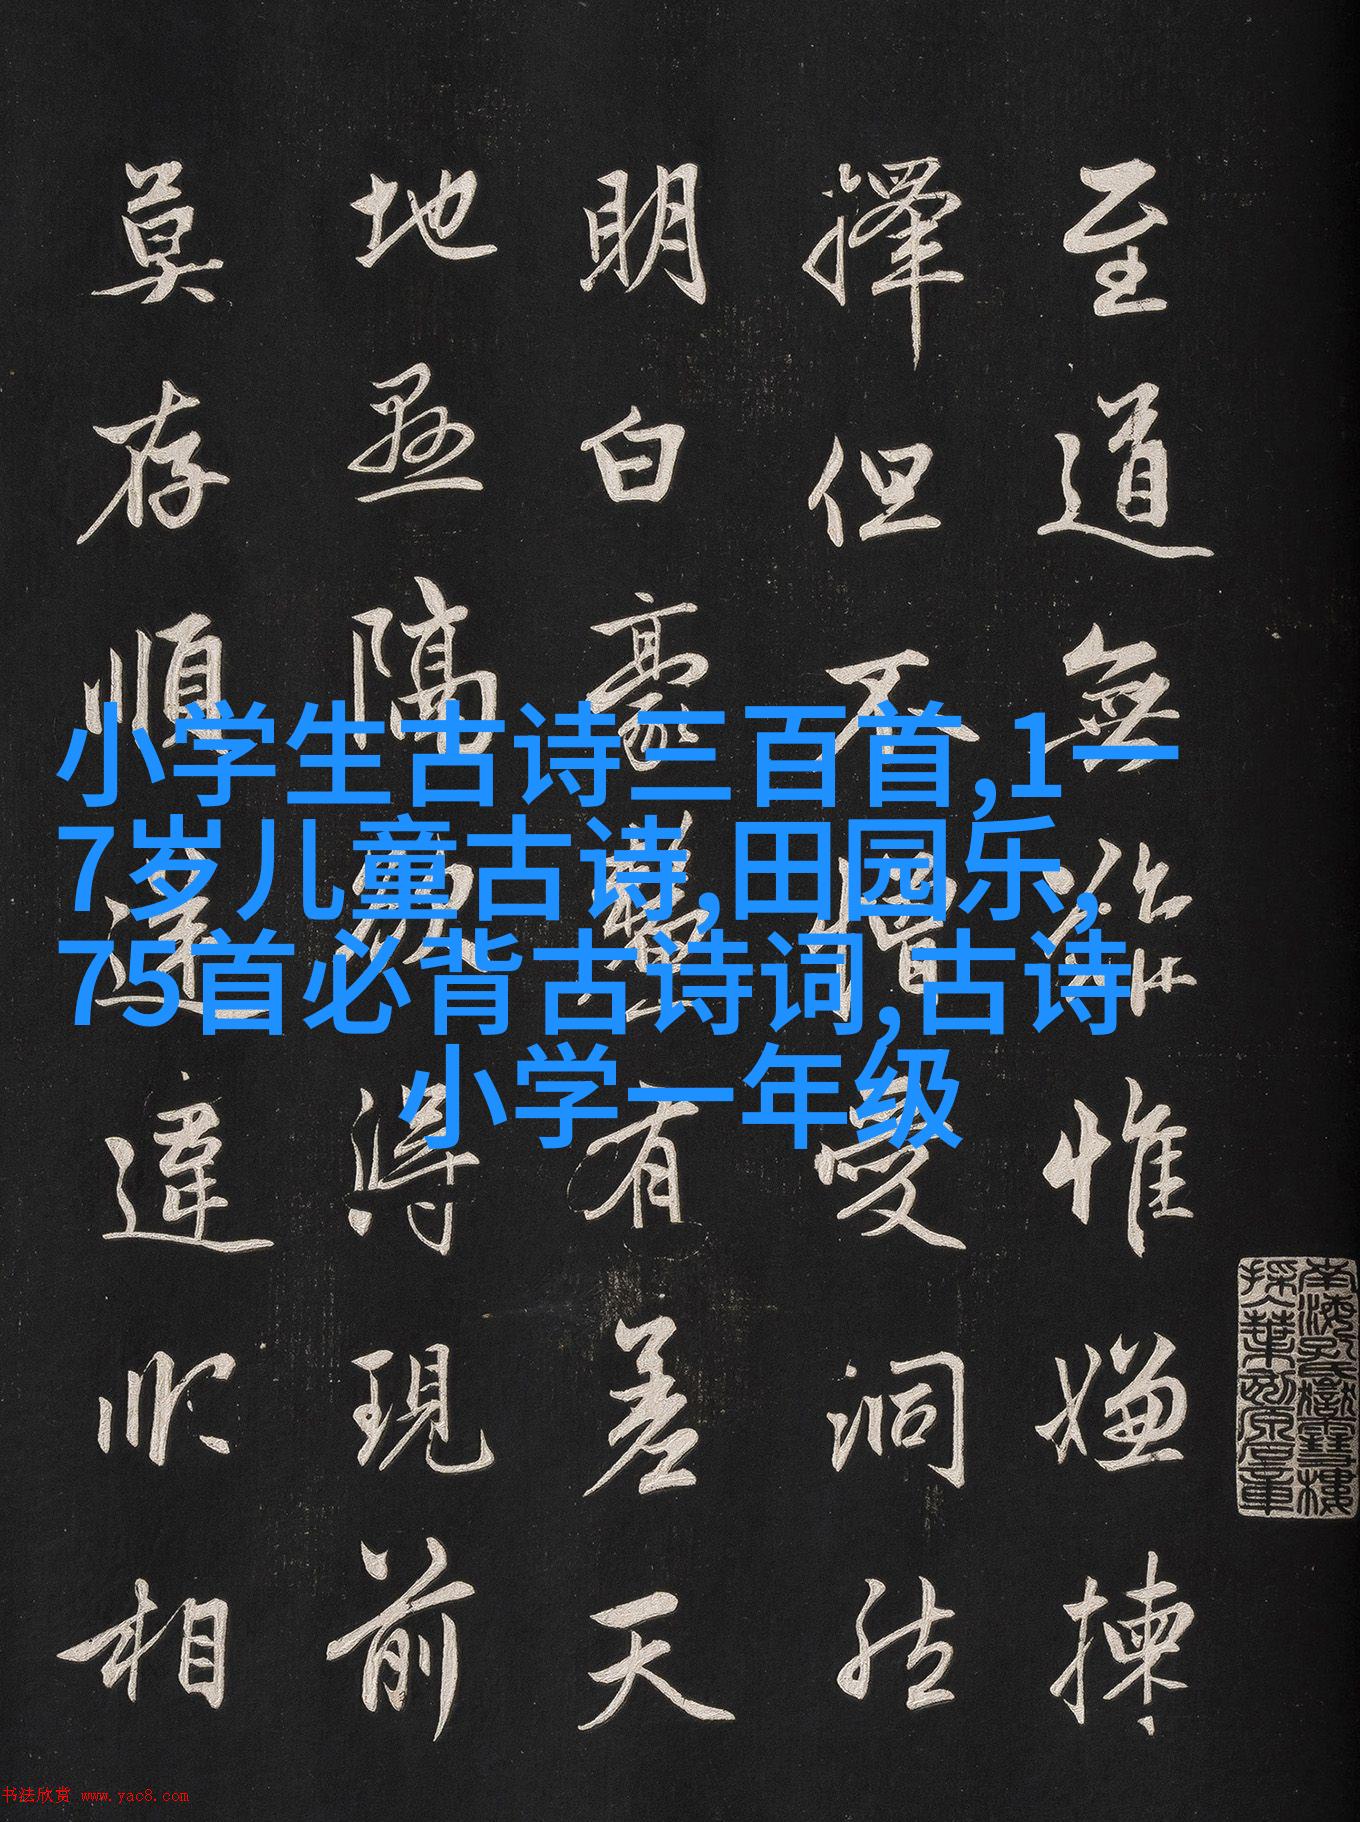 至道無難惟嫌揀
擇但不憎愛洞然
明白豪釐有差天
地懸隔欲得現前
莫存順逆違順相
小学生古诗三百首,1一
7岁儿童古诗,田园乐,
75首必背古诗词,古诗
小学一年级
书法欣赏 www.yac8.com